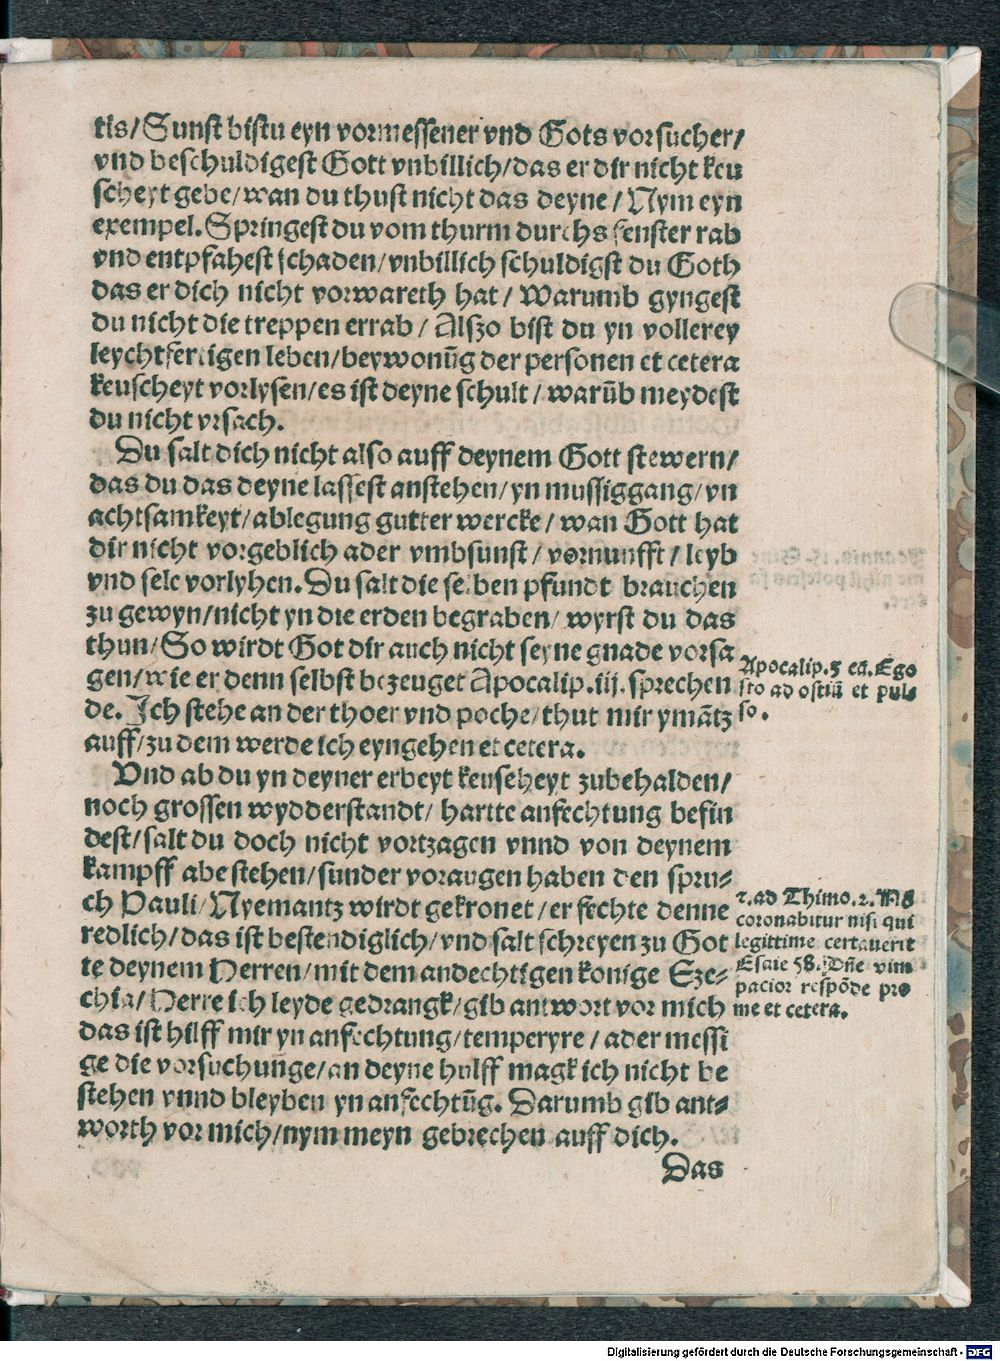 tis/Sunst bistu eyn vormessener vnd Gots vorsucher/
vnd beschuldigest Gott vnbillich/das er dir nicht keu
scheyt gebe/wan du thust nicht das deyne/Nym eyn
exempel.Springest du vom thurm durchs fenster rab
vnd entpfahest schaden/vnbillich schuldigst du Goth
das er dich nicht vorwareth hat/Warumb gyngest
du nicht die treppen errab/Alszo bist du yn vollerey
leychtfertigen leben/beywonūg der personen et cetera
keuscheyt vorlysen/es ist deyne schult/warūb meydest
du nicht vrsach.
Du salt dich nicht also auff deynem Gott stewern/
das du das deyne lassest anstehen/yn mussiggang/vn
achtsamkeyt/ablegung gutter wercke/wan Gott hat
dir nicht vorgeblich ader vmbsunst/vornunfft/leyb
vnd sele vorlyhen.Du salt die selben pfundt brauchen
zu gewyn/nicht yn die erden begraben/wyrst du das
thun/So wirdt Got dir auch nicht seyne gnade vorsa
gen/wie er denn selbst bezeuget Apocalip.iij.sprechen
de.Ich stehe an der thoer vnd poche/thut mir ymātz
auff/zu dem werde ich eyngehen et cetera.
Apocalip.3 ca.Ego
sto ad ostiū et pul
so.
Vnd ab du yn deyner erbeyt keuseheyt zubehalden/
noch grossen wydderstandt/hartte anfechtung befin
dest/salt du doch nicht vortzagen vnnd von deynem
kampff abe stehen/sunder voraugen haben den spru⸗
ch Pauli/Nyemantz wirdt gekronet/er fechte denne
redlich/das ist bestendiglich/vnd salt schreyen zu Got
te deynem Herren/mit dem andechtigen konige Eze⸗
chia/Herre ich leyde gedrangk/gib antwort vor mich
das ist hilff mir yn anfechtung/temperyre/ader messi
ge die vorsuchunge/an deyne hulff magk ich nicht be
stehen vnnd bleyben yn anfechtūg.Darumb gib ant⸗
worth vor mich/nym meyn gebrechen auff dich.
ad Thimo.2.
coronabitur nisi qui
legittime certauerit
Esaie 58.Dñe vim
pacior respōde pro
me et cetera.
Das
Digitalisierung gefördert durch die Deutsche Forschungsgemeinschaft - DFG